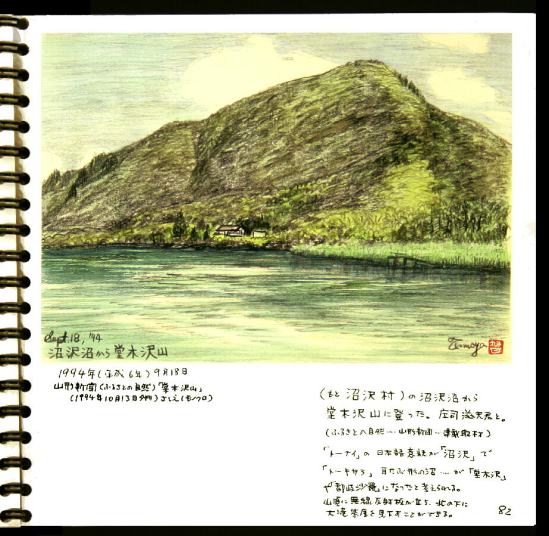 Sept. 18, '94
沼沢沼から堂木沢山
Tomoya
1994年(平成6年)9月18日
山形新聞(ふるさとの自然)「堂木沢山」
(1994年10月13日夕刊)さしえ(モノクロ)
(もと 沼沢村)の沼沢沼から
堂木沢山に登った。庄司滋夫君と。
(ふるさとの自然…山形新聞…連載取材)
「トーナイ」の日本語意訳が「沼沢」で
形の沼…が「堂木沢」
になったと考えられる。
山頂に無線反射板が立ち、北の下に
大滝 を見下すことができる。
82